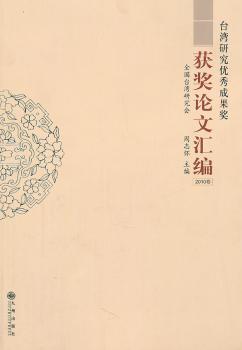 台湾研究优秀成果奖
获奖论文汇编
2010卷
全国台湾研究会
周志怀 主编
九州出版社